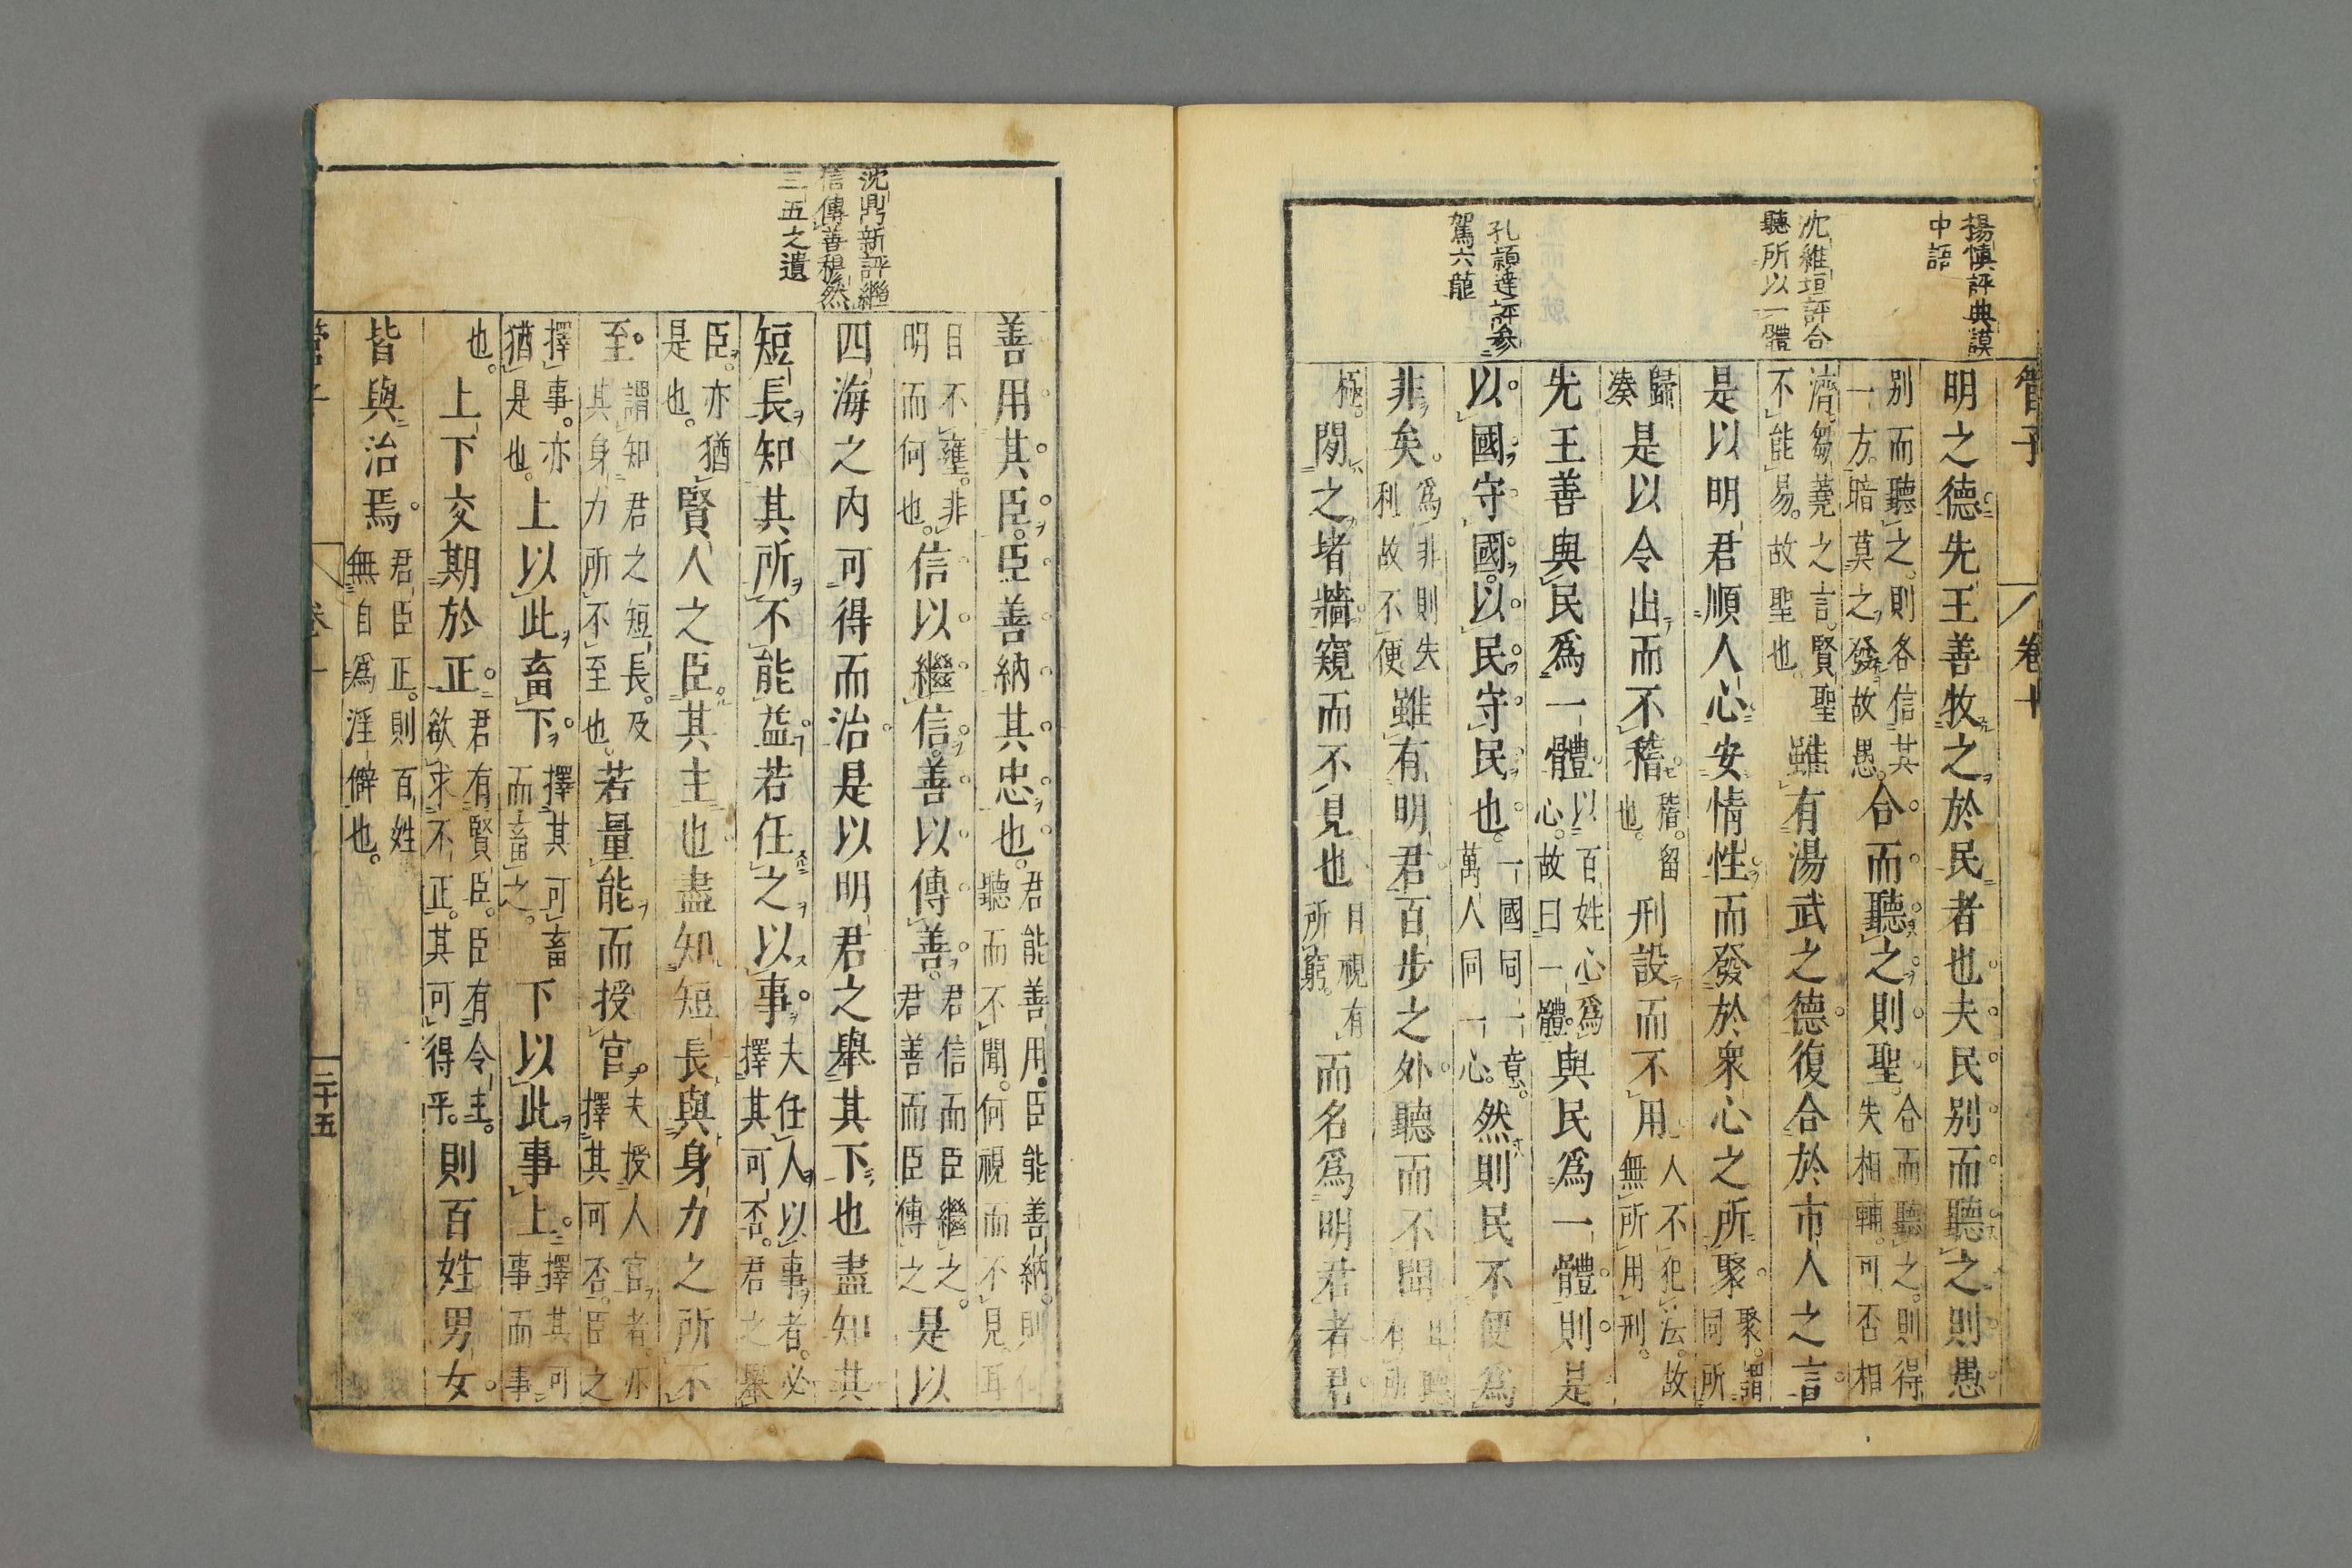 管子
卷十
揚慎評典謨
中語
沈維垣評合
聽所以一體
孔頴達評參
駕六龍
明之德先王善牧之於民者也夫民别而聽之則愚
别而聽之則各信其
一方暗莫之發故愚
合而聽之則聖
合而聽之則得
失相輔可否相
濟芻蕘之言賢聖
不能易故聖也
雖有湯武之德復合於市人之言
是以明君順人心安情性而發於衆心之所聚
聚謂
同所
歸
湊
是以令出而不稽
稽留
也
刑設而不用
人不犯法故
無所用刑
先王善與民爲一體
以百姓心爲
心故曰一體
與民爲一體則是
以國守國以民守民也
一國同一意
萬人同一心
然則民不便爲
非矣
爲非則失
利故不便
雖有明君百步之外聽而不聞
耳聽
有所
極
閒之堵牆窺而不見也
目視有
所窮
而名爲明君者君
沈鼎新評繼
信傳善穆然
三五之遺
善用其臣臣善納其忠也
君能善用臣能善納則
聽而不聞何視而不見耳
目不壅非
明而何也
信以繼信善以傳善
君信而臣繼之
君善而臣傳之
是以
四海之内可得而治是以明君之舉其下也盡知其
短長知其所不能益若任之以事
夫任人以事者必
擇其可否君之舉
臣亦猶
是也
賢人之臣其主也盡知短長與身力之所不
至
謂知君之短長及
其身力所不至也
若量能而授官
夫授人官者亦
擇其可否臣之
擇事亦
猶是也
上以此畜下
擇其可畜
而畜之
下以此事上
擇其可
事而事
也
上下交期於正
君有賢臣臣有令主
欲求不正其可得乎
則百姓男女
皆與治焉
君臣正則百姓
無自爲淫僻也
二十五